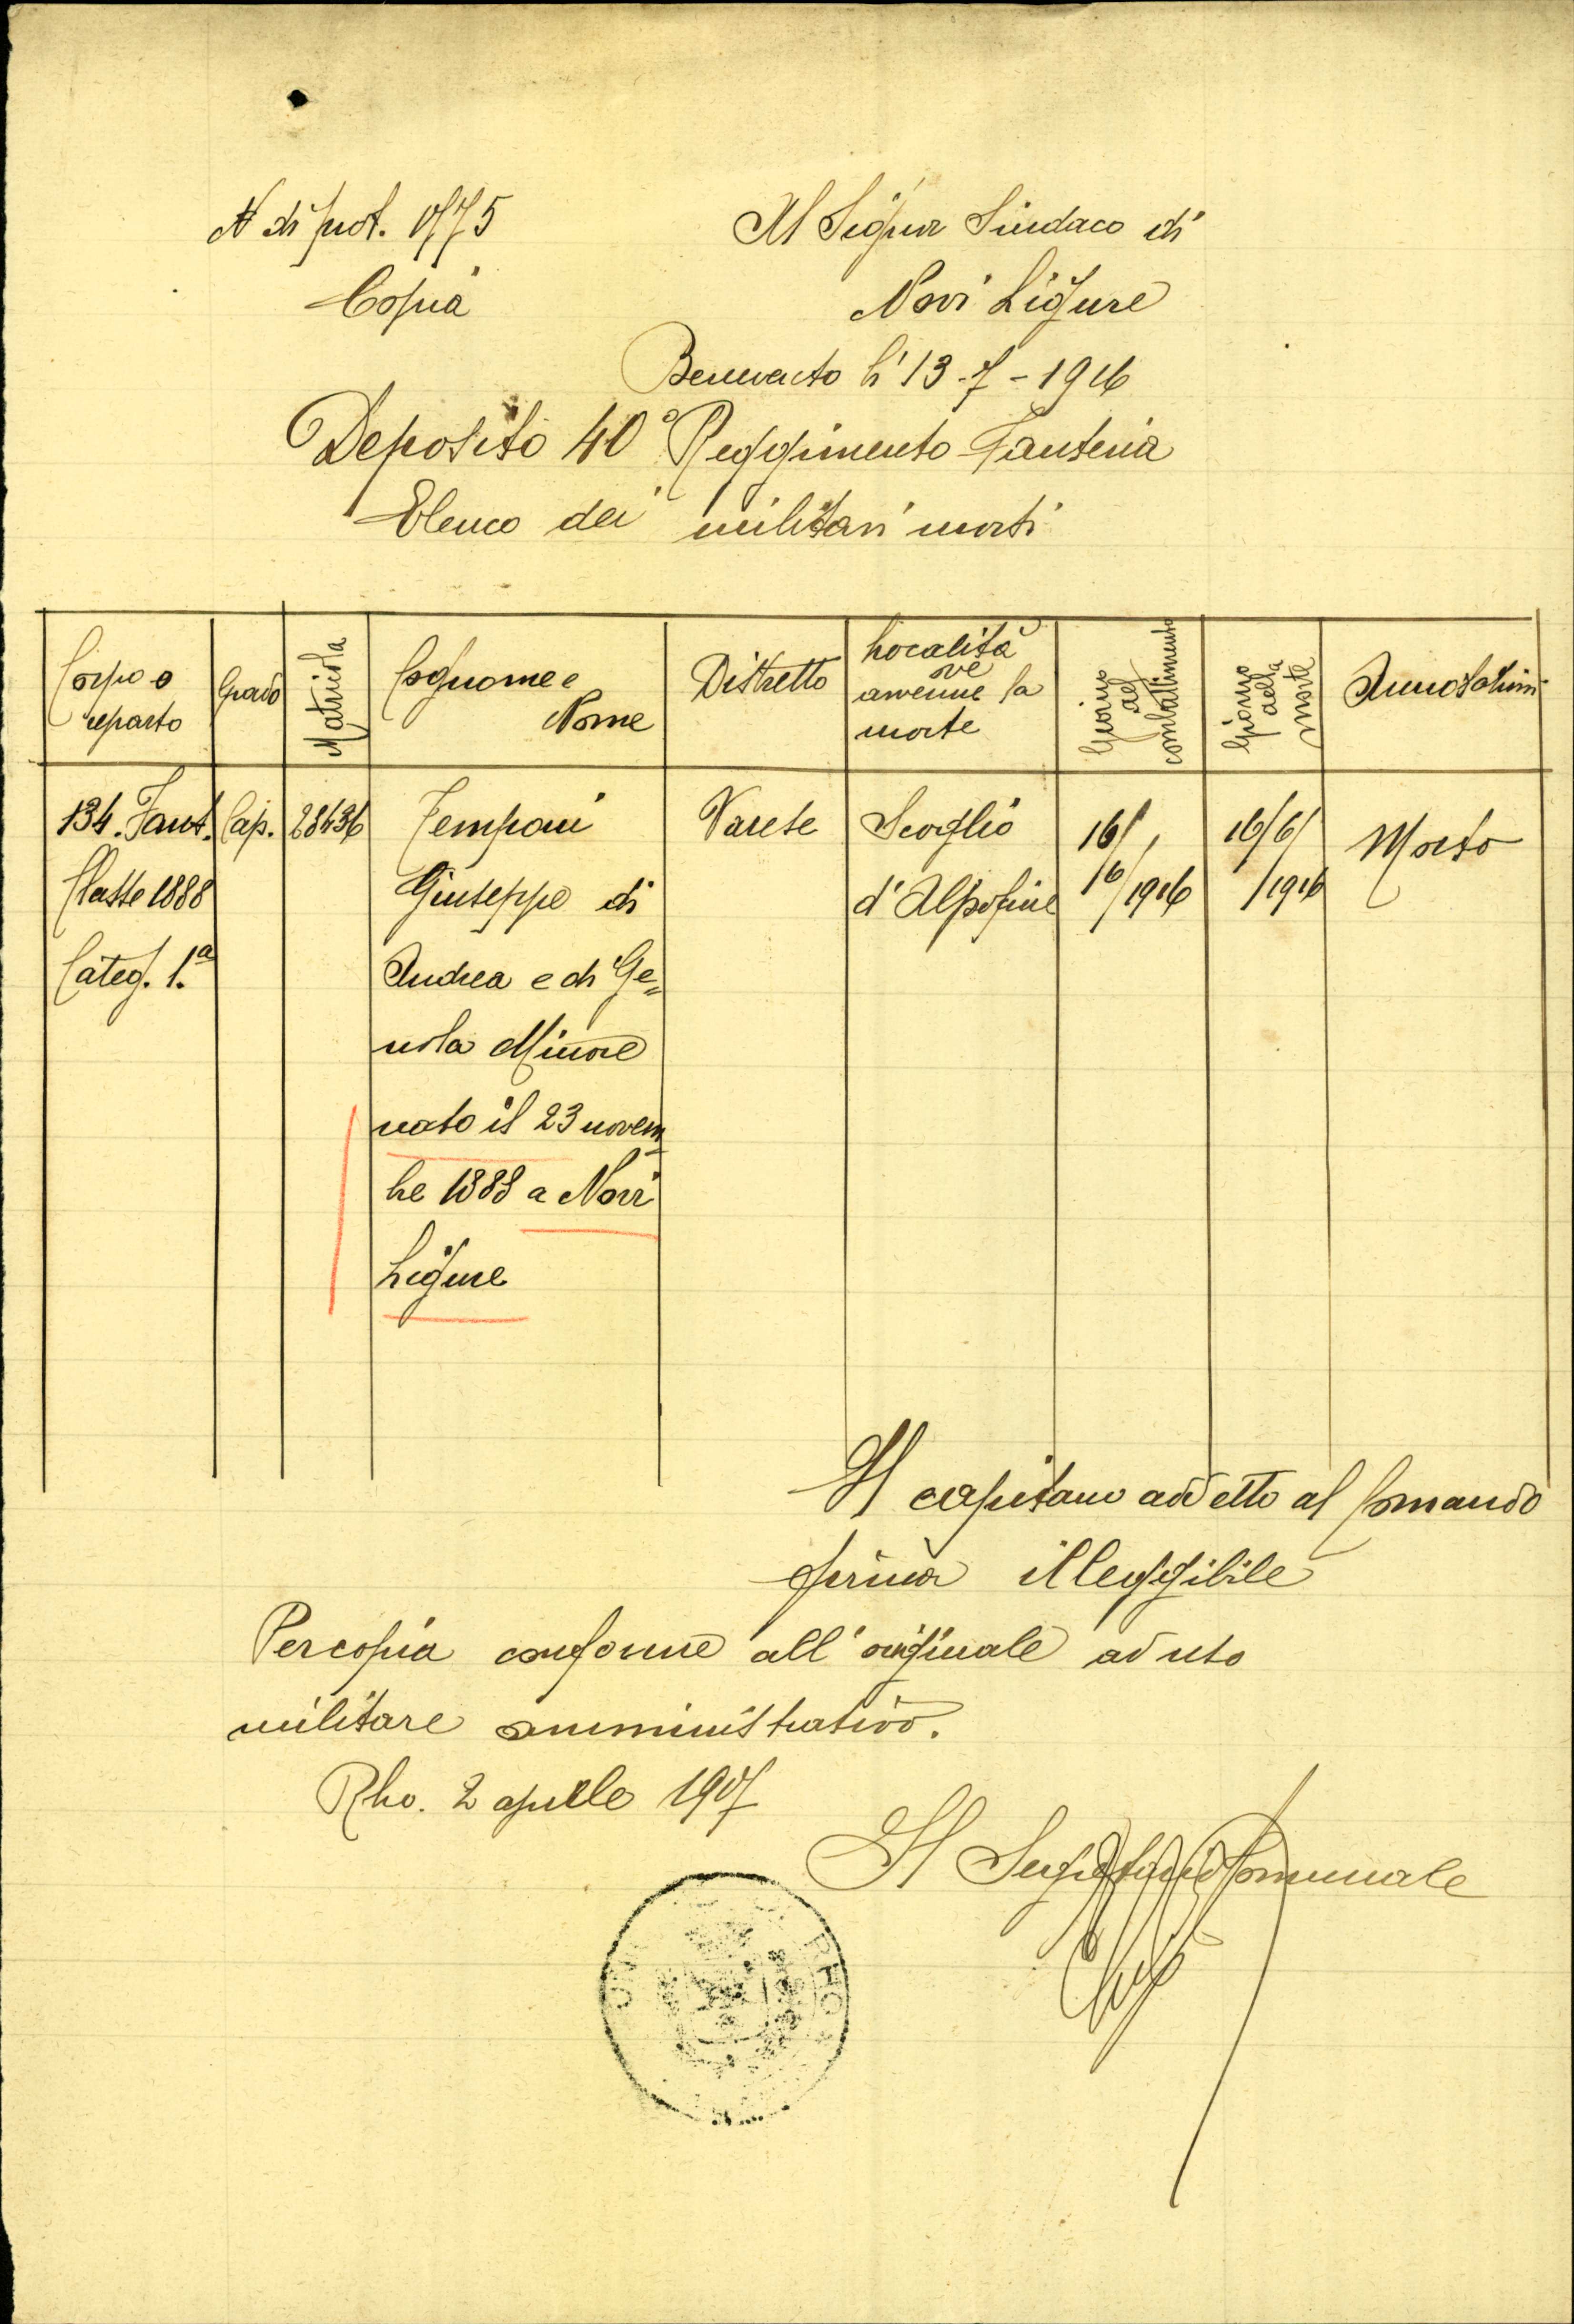 N di prot. 1775
Al Signor Sindaco di
Copia
Novi Ligure
Benevento li 13-7-1916
Deposito 40° Reggimento Fanteria
Elenco dei militari morti
Corpo o reparto
Grado
Matricola
Cognome e Nome
Distretto
Località ove avvenne la morte
Giorno del combattimento
Giorno della morte
Annotazioni
134. Fant. Cap. 28436 Temponi Varese Scoglio 16/ 16/6/ Morto
Classe 1888 Giuseppe di d'Alpofine 16/1916 /1916
Categ. 1.a Andrea e di Ge=
nola Minore
nato il 23 novem
bre 1888 a Novi
Ligure
Il capitano addetto al Comando
firma illeggibile
Per copia conforme all'originale ad uso
militare amministrativo.
Rho. 2 aprile 1917
Il Segretario Comunale
RHO